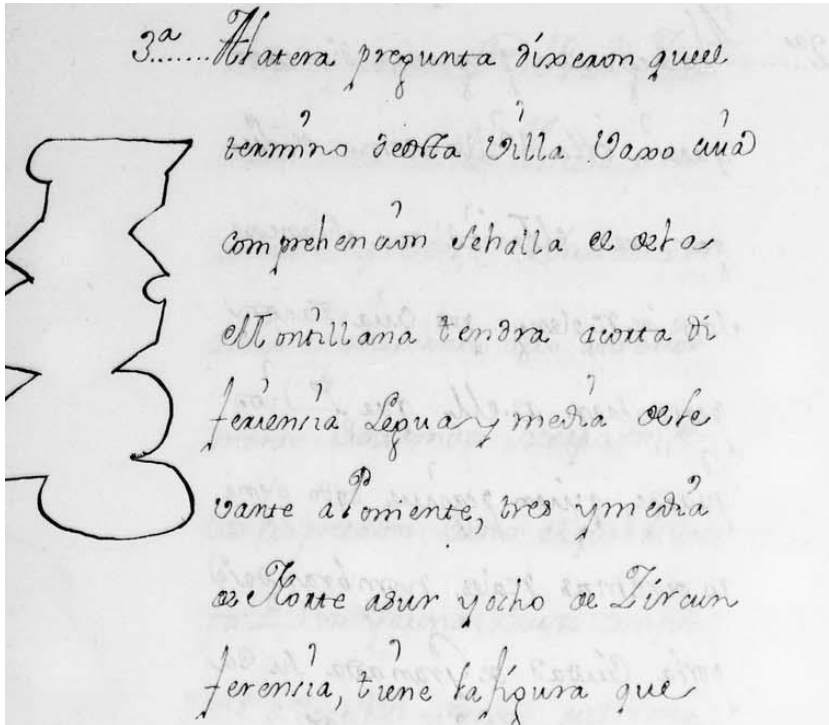 3ª....... A la tersa pregunta dixeron que el
termino de esta Villa vaxo cuia
comprehencion se halla el de esta
Montillana tendra a corta di
ferencia Legua y media de le
vante a Poniente, tres y media
de Norte a sur y ocho de Zircun
ferencia, tiene la figura que